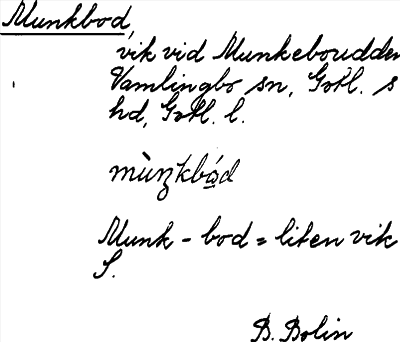 Munkbod,
vik vid Munkeboudden
Vamlingbo sn, Gotl. s
hd, Gotl. l.
mùŋkbo̱d
Munk - bod = liten vik
S.
B. Bolin